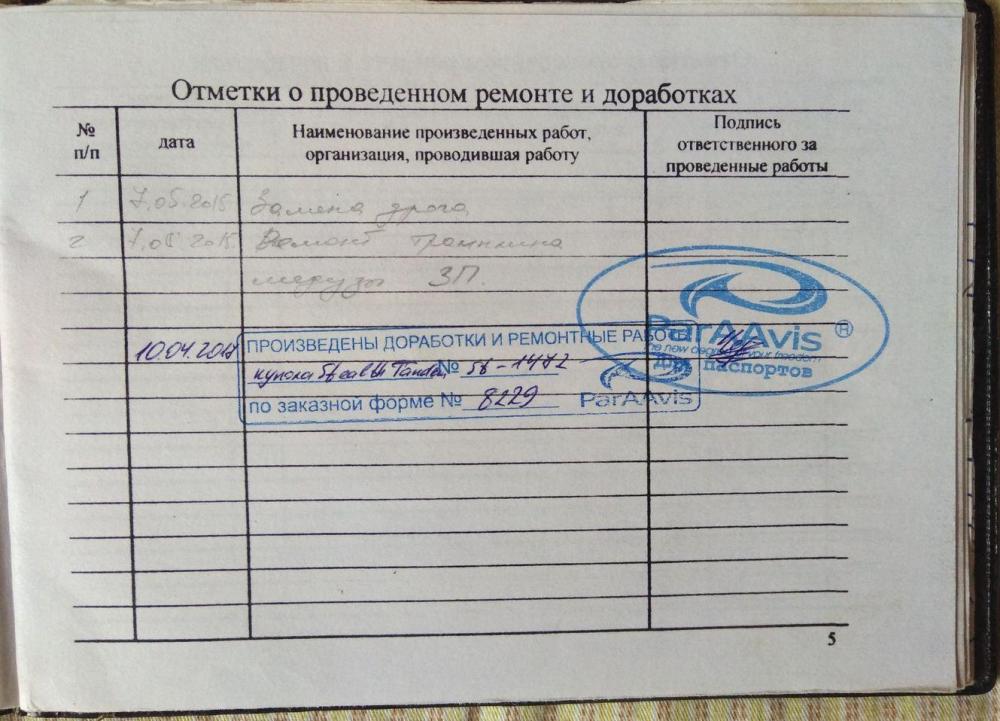 Отметки о проведенном ремонте и доработках
№ п/п
дата
Наименование произведенных работ,
организация, проводившая работу
Подпись
ответственного за
проведенные работы
1 7.05.2015 Замена дрога
2 7.05.2015 Ремонт трамплина
медузы ЗП.
ParAAvis ®
The new degree of your freedom
для паспортов
10.04.2017 ПРОИЗВЕДЕНЫ ДОРАБОТКИ И РЕМОНТНЫЕ РАБОТЫ
купола Stealth Tandem № 56-1472
по заказной форме № 8229 ParAAvis
5